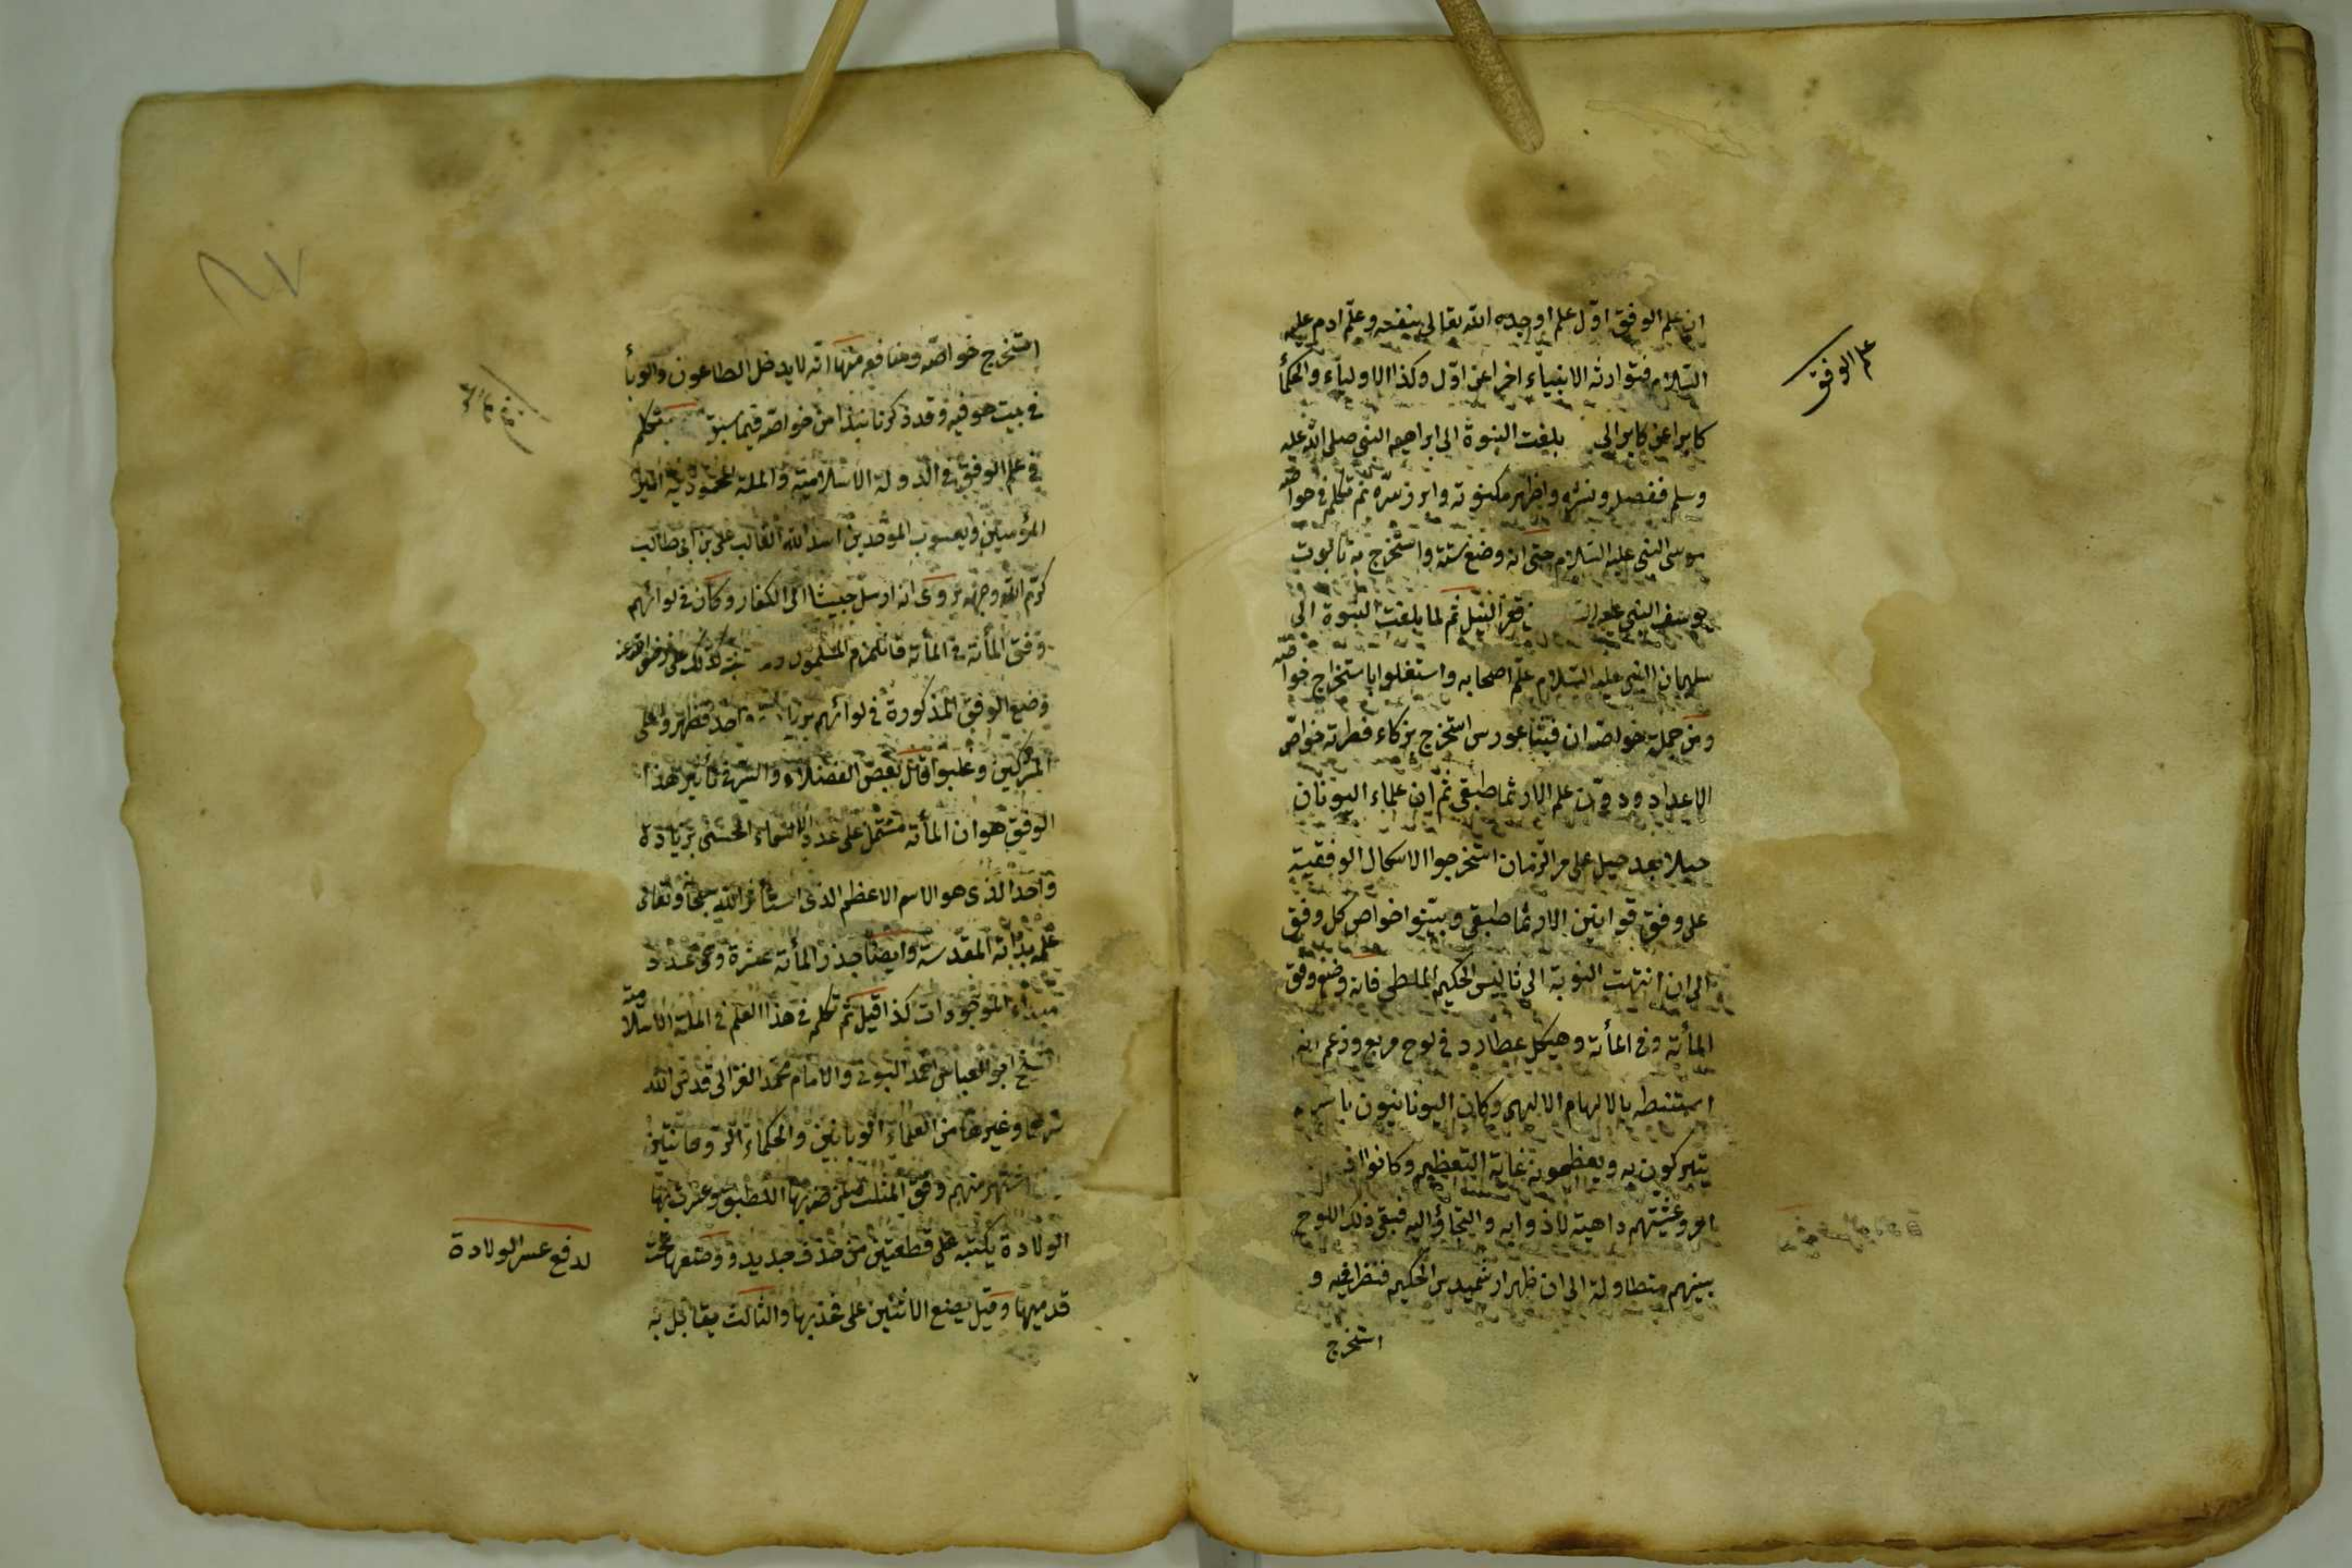 علم الوفق
ان علم الوفق اوّل علم اوجده الله تعالى بنفسه وعلّم ادم عليه
السّلام فتوارثه الانبياء اخرا عن اوّل وكذا الاولياء والحكمأ
كابرا عن كابر الى بلغت النبوة الى ابراهيم النبى صلى الله عليه
وسلم ففصل ونشره واظهر مكنونه وابرز سرّه ثم تكلم فى خواصّه
موسى النبى عليه السّلام حتى انه وضع ستة واستخرج به تابوت
يوسف النبى قعر النيل ثم لما بلغت النبوة الى
سليمان النبى عليه السّلام علّم اصحابه واستغلوا باستخراج خواصّه
ومن جملة خواصّه ان فيثاغورس استخرج بذكاء فطرته خواصّ
الاعداد ودوّن علم الارثماطيقى ثم ان علماء اليونان
جيلا بعد جيل على مر الزمان استخرجوا الاشكال الوفقية
على وفق قوانين الارثماطيقى وبيّنوا خواص كل وفق
الى ان انتهت النوبة الى ثاليس الحكيم الملطى فانه وضع وفق
المأته فى المأته وهيكل عطارد فى لوح مربع وزعم انه
استنبطه بالالهام الالهى وكان اليونانيون باسر
يتبركون به ويعظمونه غاية التعظيم وكانوا اذ
امر وغشيتهم داهية لاذوا به والتجاؤ اليه فبقى ذلك اللوح
بينهم متطاولة الى ان ظهر ارشميدس الحكيم فنظر فيه و
استخرج
استخرج خواصّه ومنافعه منها انّه لا يدخل الطاعون والوبأ
فى بيت هو فيه وقد ذكرنا نبذا من خواصّه فيما سبق تكلم
فى علم الوفق فى الدولة الاسلامية والملة المحمودية امير
المؤمنين ويعسوب الموحّدين اسد الله الغالب على بن ابى طالب
كرّم الله وجهه روى انه ارسل جيشا الى الكفار وكان فى لوائهم
وفق المأته فى المأته فانهزم المسلمون
وضع الوفق المذكورة فى لوائهم واحد فظهروا على
المشركين وغلبوا قال بعض الفضلاء والسّر فى تأثير هذا
الوفق هو ان المأته مشتمل على عدد الاسماء الحسنى بزيادة
واحد الذى هو الاسم الاعظم الذى استأثر الله سبحانه وتعالى
علمه بذاته المقدسة وايضا جذر المأته عشرة وهى عدد
مبداء الموجودات كذا قيل ثم تكلم فى هذا العلم فى الملة الاسلامية
الشيخ ابو العباس احمد البونى والامام محمد الغزالى قدس الله
سرهما وغيرهما من العلماء الربانيين والحكماء الروحانيين
اشتهر منهم وفق المثلث
الولادة يكتبه على قطعتين من خذف جديد ووضعها تحت
قدميها وقيل يضع الاثنين على فخذيها والثالث مقابل به
لدفع عسر الولادة